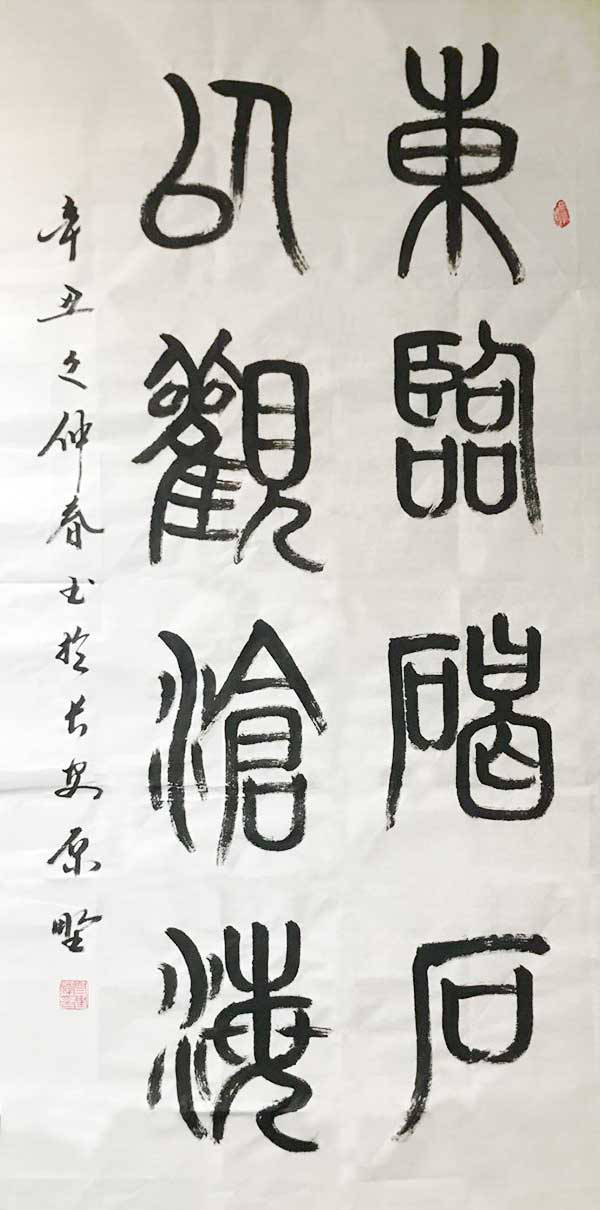 東臨碣石
以觀滄海
辛丑之仲春书於长安原野